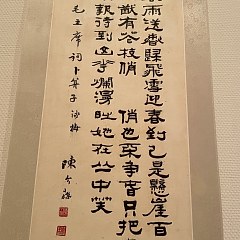 雨送春归飛雪迎春到已是懸崖百
猷有花枝俏 俏也不争春只把
報待到山花爛漫时她在丛中笑
毛主席词卜算子 咏梅